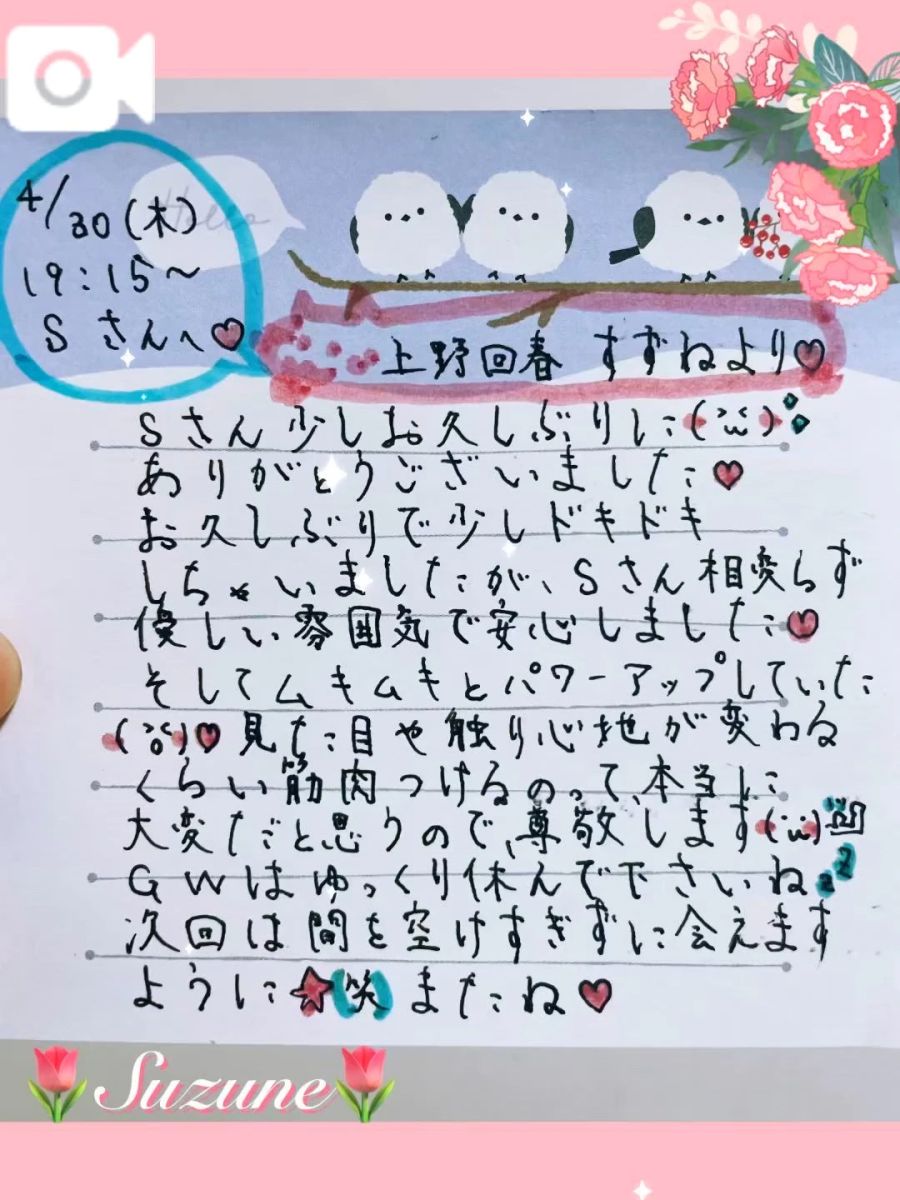 Hello
4/30(木)
19:15〜
Sさんへ♥
上野回春 すずねより♥
Sさん少しお久しぶりに
ありがとうございました♥
お久しぶりで少しドキドキ
しちゃいましたが、Sさん相変らず
優しい雰囲気で安心しました♥
そしてムキムキとパワーアップしていた
♥見た目や触り心地が変わる
くらい筋肉つけるのって、本当に
大変だと思うので、尊敬します
GWはゆっくり休んで下さいねzz
次回は間を空けすぎずに会えます
ように★(笑)またね♥
Suzune